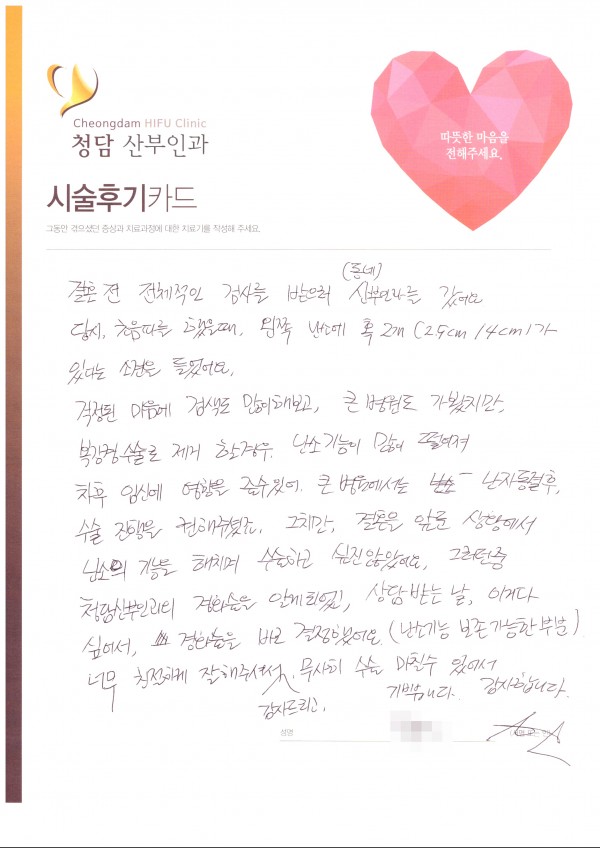 Cheongdam HIFU Clinic
청담 산부인과
따뜻한 마음을
전해주세요.
시술후기카드
그동안 겪으셨던 증상과 치료과정에 대한 치료기를 작성해 주세요.
(동네)
결혼 전 전체적인 검사를 받으러 산부인과를 갔어요
당시, 초음파를 했을때, 왼쪽 난소에 혹 2개 (2.9cm / 4cm)가
있다는 소견을 들었어요.
걱정된 마음에 검색도 많이해보고, 큰 병원도 가봤지만,
복강경수술로 제거 할경우. 난소기능이 많이 떨어져
차후 임신에 영향을 줄수있어. 큰 병원에서는 난자동결후,
수술 진행을 권해주셨죠. 그치만, 결혼을 앞둔 상황에서
난소의 기능을 해치며 수술하고 싶진않았어요. 그러던중
청담산부인과의 경화술을 알게되었고, 상담 받는 날, 이거다
싶어서, 경화술을 바로 결정했어요. (난소기능 보존 가능한 부분)
너무 친절하게 잘해주셔서 무사히 수술 마칠수 있어서
감사드리고, 기쁩니다. 감사합니다.
성명